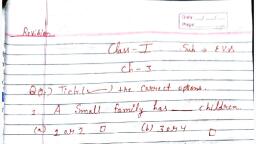 Date
Page
Revision
Class - I Sub → EVS
Ch - 3
Q(1) Tick (✓) the correct options.
1. A Small family has ___ children.
(a) 2 or 2 □ (b) 3 or 4 □